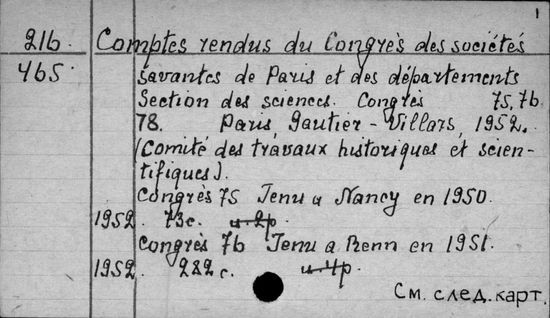 1
216. Comptes rendus du Congrès des sociétés
465. savantes de Paris et des départements
Section des sciences. Congrès 75, 76.
78. Paris, Gautier-Villars, 1952.
(Comité des travaux historiques et scien-
tifiques).
Congrès 75 Tenu a Nancy en 1950.
1952. 73c. u. 2p.
Congrès 76 Tenu a Renn en 1951.
1952. 282 c. u. 4p.
См. след. карт.